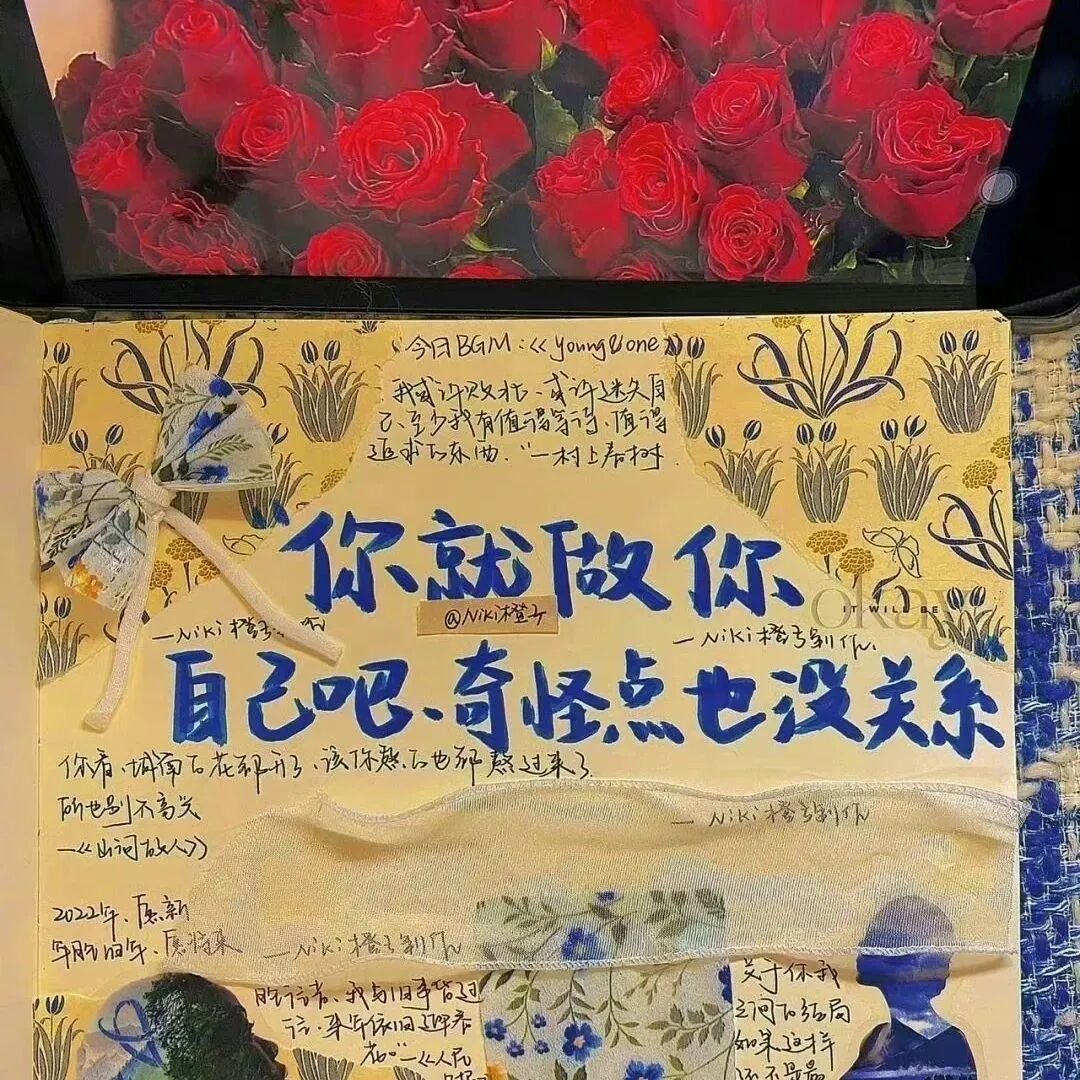 今日BGM:《young&one》
我或许败北、或许迷失自
己、至少我有值得等待、值得
追求的东西."—村上春树.
你就做你
@Niki橙子
—Niki橙子
—Niki橙子制作.
okay
IT WILL BE
自己吧、奇怪点也没关系
你看、城南的花都开了、该你熬的也都熬过来了.
—Niki橙子制作
—《山河故人》
2022年、愿新
年胜旧年、愿将来
—Niki橙子制作
胜过往、我与旧事皆过
往、来年依旧迎春
花。"—《人民
关于你我
之间的结局
如果这样
还不是最